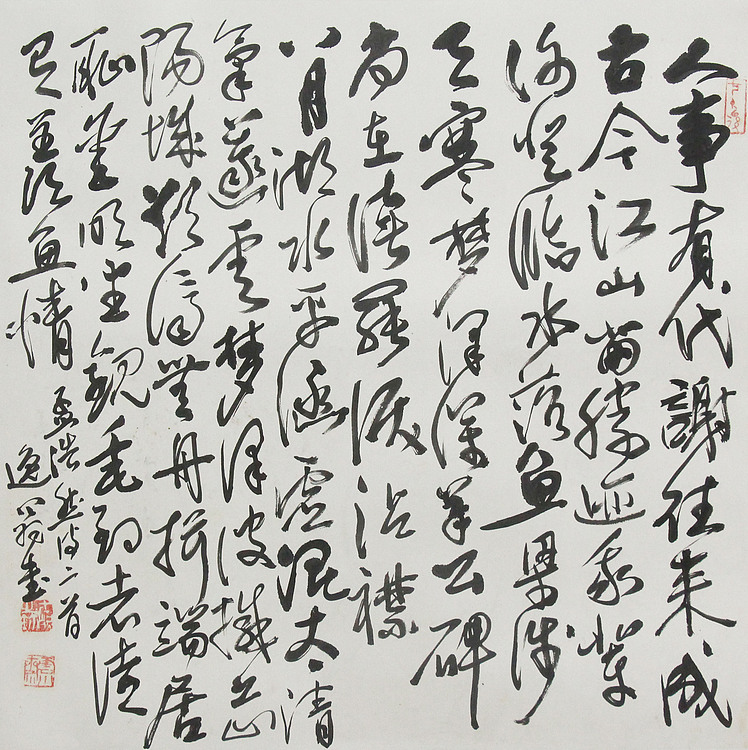 人事有代謝往来成
古今江山留勝迹我輩
復登臨水落魚梁浅
天寒夢澤深羊公碑
尚在讀罷淚沾襟
八月湖水平涵虛混太清
氣蒸雲夢澤波撼岳
陽城欲濟無舟楫端居
恥聖明坐觀垂釣者徒
有羨魚情
孟浩然诗二首
逸翁書